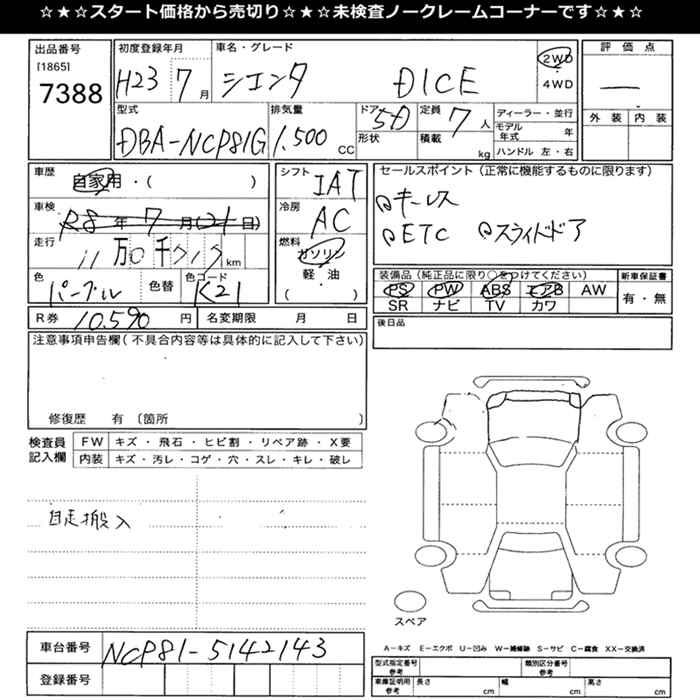 ☆★☆★スタート価格から売切り☆★☆★未検査ノークレームコーナーです☆★☆
出品番号 [1865] 7388
初度登録年月 H23 7月
車名・グレード シエンタ DICE
2WD・4WD
評価点 —
外装 内装
型式 DBA-NCP81G
排気量 1.500 CC
ドア 5D 形状
定員 7人 積載 kg
ディーラー・並行
モデル年式 年
ハンドル 左・右
車歴 自家用・( )
シフト IAT
セールスポイント (正常に機能するものに限ります)
キーレス
ETC スライドドア
車検 R8年7月(21日)
冷房 AC
走行 11万0千 km
燃料 ガソリン・軽油 ( )
色 パープル 色替
色コード K21
装備品 (純正品に限り○をつけてください)
PS PW ABS エアB AW
SR ナビ TV カワ
新車保証書 有・無
R券 10,590円
名変期限 月 日
後日品
注意事項申告欄(不具合内容等は具体的に記入して下さい)
修復歴 有 〔箇所 〕
検査員記入欄
FW キズ・飛石・ヒビ割・リペア跡・X要
内装 キズ・汚レ・コゲ・穴・スレ・キレ・破レ
自走搬入
スペア
車台番号 NCP81-5142143
登録番号
A-キズ E-エクボ U-凹み W-補修跡 S-サビ C-腐食 XX-交換済
型式指定番号 参考
類別区分番号 参考
車庫証明用 参考 長さ cm 幅 cm 高さ cm